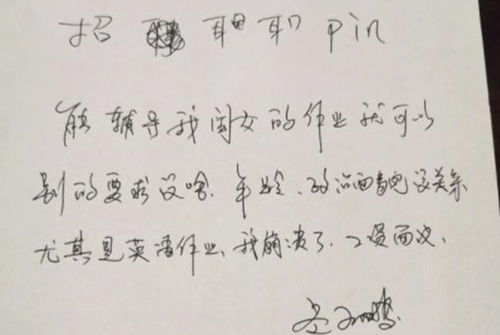 招 职 职 Pin
能辅导我闺女的作业就可以
别的要求没啥.年龄、政治面貌没关系
尤其是英语作业、我崩溃了.工资面议.